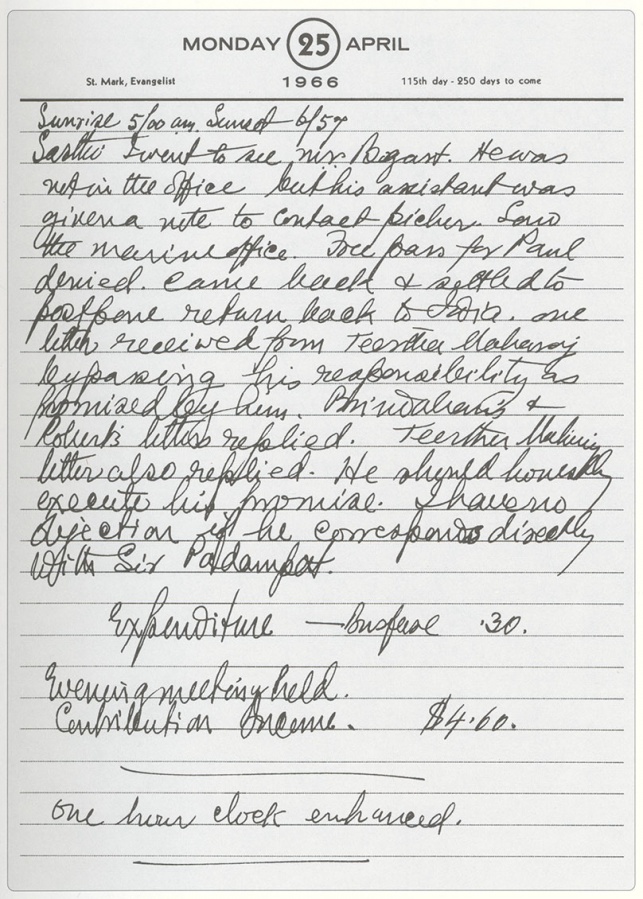 MONDAY 25 APRIL
St. Mark, Evangelist 1966 115th day - 250 days to come
Sunrise 5/00 am. Sunset 6/57
I went to see mr. Bogart. He was
not in the office but his assistant was
given a note to contact picher. Saw
the marine office. Free pass for Paul
denied. Came back & settled to
postpone return back to India. one
letter received from Teertha Maharaj
bypassing his responsibility as
promised by him. &
Robert's letters replied. Teertha Maharaj
letter also replied. He should honestly
execute his promise. I have no
objection if he corresponds directly
with Sir Padampat.
Expenditure — Busfare .30.
Evening meeting held.
Contribution Income. $4.60.
one hour clock enhanced.